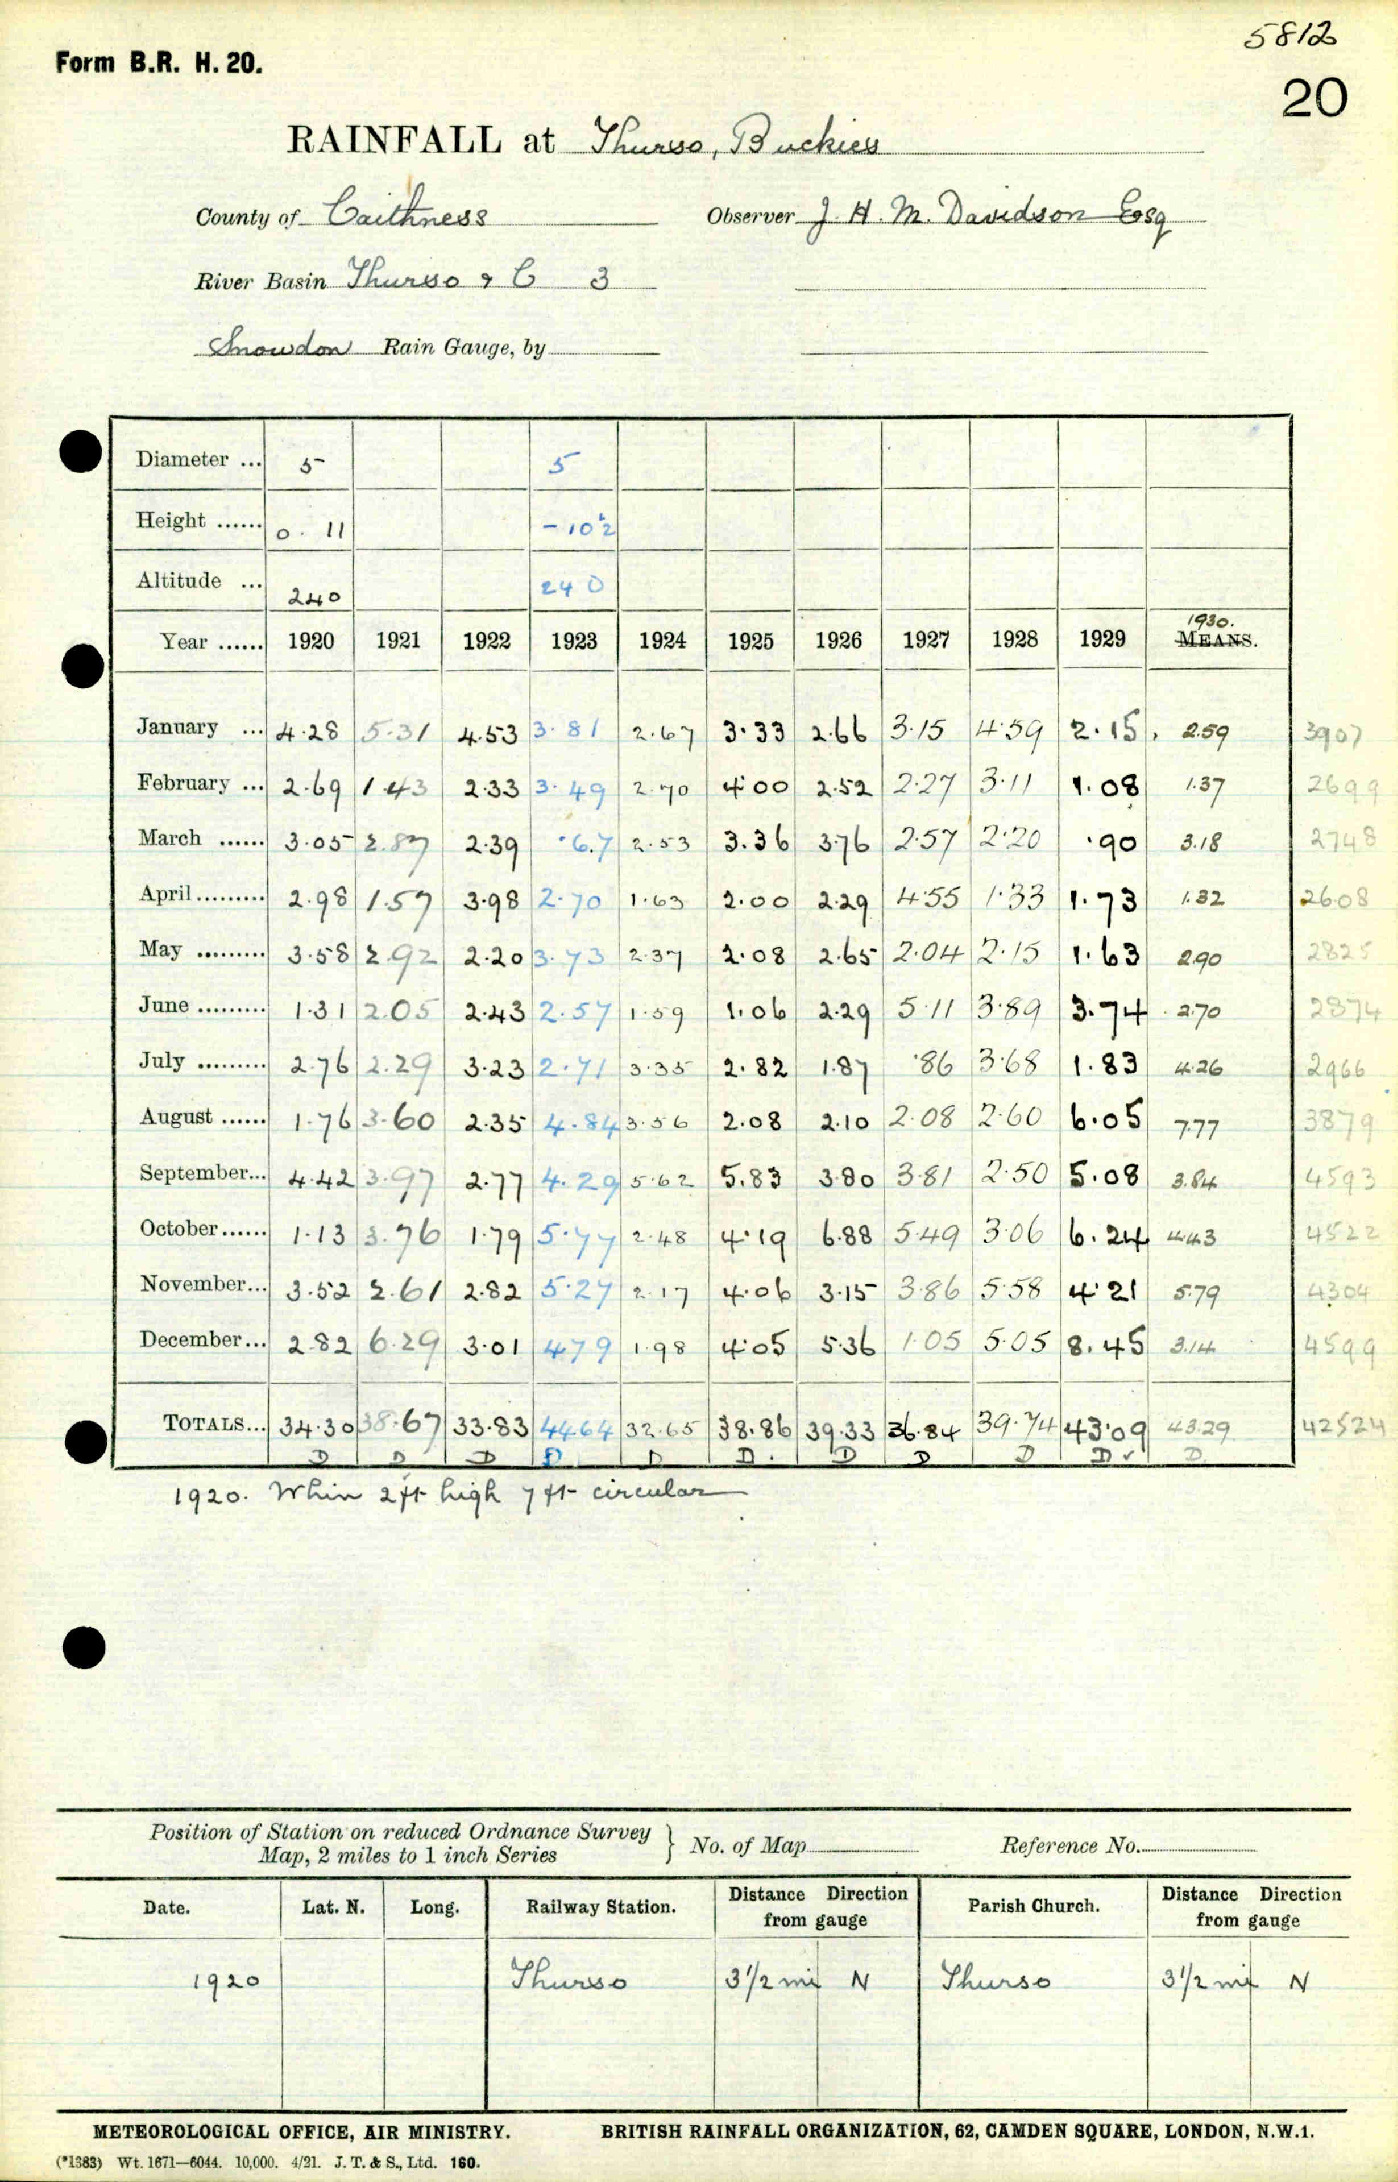 5812
Form B.R. H. 20.
20
RAINFALL at Thurso, Buckies
County of Caithness Observer J. H. M. Davidson Esq
River Basin Thurso & C 3
Snowdon Rain Gauge, by
Diameter ... 5 5
Height ...... 0 . 11 - 10½
Altitude ... 240 240
1930.
Year ...... 1920 1921 1922 1923 1924 1925 1926 1927 1928 1929 MEANS.
January ... 4.28 5.31 4.53 3.81 2.67 3.33 2.66 3.15 4.59 2.15 2.59 3907
February ... 2.69 1.43 2.33 3.49 2.70 4.00 2.52 2.27 3.11 1.08 1.37 2699
March ...... 3.05 2.87 2.39 .67 2.53 3.36 3.76 2.57 2.20 .90 3.18 2748
April ......... 2.98 1.57 3.98 2.70 1.63 2.00 2.29 4.55 1.33 1.73 1.32 2608
May ......... 3.58 2.92 2.20 3.73 2.37 2.08 2.65 2.04 2.15 1.63 2.90 2825
June ......... 1.31 2.05 2.43 2.57 1.59 1.06 2.29 5.11 3.89 3.74 2.70 2874
July ......... 2.76 2.29 3.23 2.71 3.35 2.82 1.87 .86 3.68 1.83 4.26 2966
August ...... 1.76 3.60 2.35 4.84 3.56 2.08 2.10 2.08 2.60 6.05 7.77 3879
September... 4.42 3.97 2.77 4.29 5.62 5.83 3.80 3.81 2.50 5.08 3.84 4593
October...... 1.13 3.76 1.79 5.77 2.48 4.19 6.88 5.49 3.06 6.24 4.43 4522
November... 3.52 2.61 2.82 5.27 2.17 4.06 3.15 3.86 5.58 4.21 5.79 4304
December... 2.82 6.29 3.01 4.79 1.98 4.05 5.36 1.05 5.05 8.45 3.14 4599
TOTALS... 34.30 38.67 33.83 44.64 32.65 38.86 39.33 36.84 39.74 43.09 43.29 42524
D D D D D D. D D D D ✓ D
1920. Whin 2 ft high 7 ft circular
Position of Station on reduced Ordnance Survey
Map, 2 miles to 1 inch Series } No. of Map Reference No.
Date. Lat. N. Long. Railway Station. Distance Direction from gauge Parish Church. Distance Direction from gauge
1920 Thurso 3 1/2 mi N Thurso 3 1/2 mi N
METEOROLOGICAL OFFICE, AIR MINISTRY. BRITISH RAINFALL ORGANIZATION, 62, CAMDEN SQUARE, LONDON, N.W.1.
(*1383) Wt. 1671—6044. 10,000. 4/21. J. T. & S., Ltd. 160.